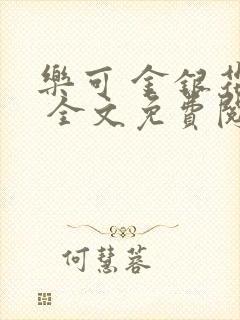 樂可 金銀花
全文免費閱
何慧蓉